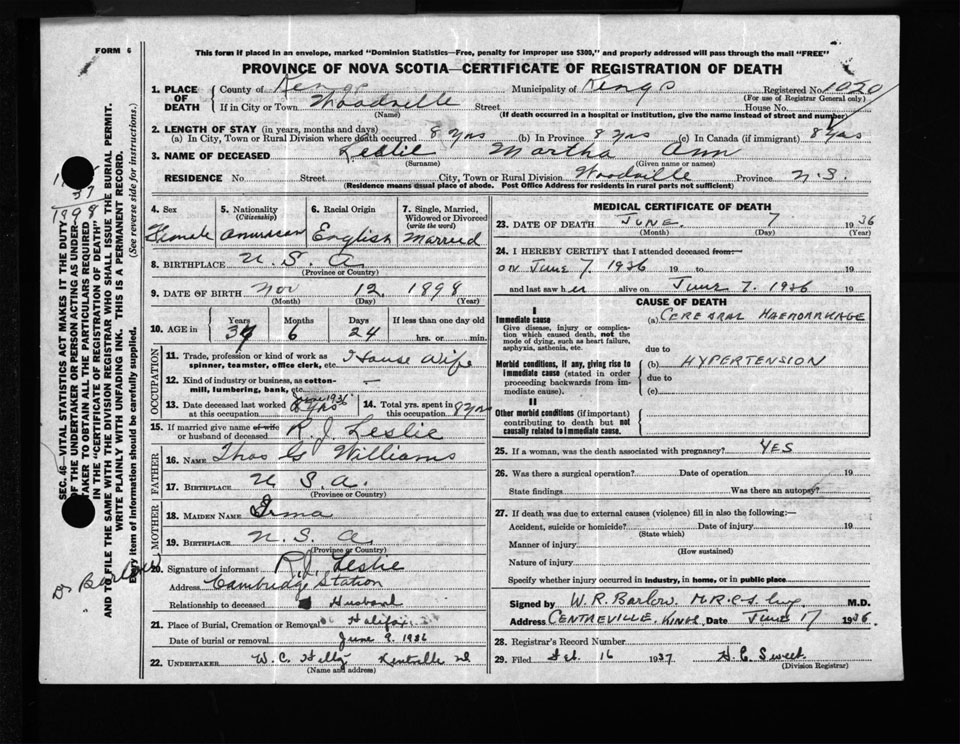 FORM 6
This form if placed in an envelope, marked "Dominion Statistics—Free, penalty for improper use $300," and properly addressed will pass through the mail "FREE"
PROVINCE OF NOVA SCOTIA—CERTIFICATE OF REGISTRATION OF DEATH
1. PLACE OF DEATH County of Kings Municipality of Kings Registered No. 1020
(For use of Registrar General only)
If in City or Town Woodville Street House No.
(Name) (If death occurred in a hospital or institution, give the name instead of street and number)
2. LENGTH OF STAY (in years, months and days)
(a) In City, Town or Rural Division where death occurred 8 yrs (b) In Province 8 yrs (c) In Canada (if immigrant) 8 yrs
3. NAME OF DECEASED Leslie Martha Ann
(Surname) (Given name or names)
RESIDENCE No. Street City, Town or Rural Division Woodville Province N.S.
(Residence means usual place of abode. Post Office Address for residents in rural parts not sufficient)
4. Sex 5. Nationality (Citizenship) 6. Racial Origin 7. Single, Married, Widowed or Divorced (write the word)
Female American English Married
8. BIRTHPLACE U. S. A
(Province or Country)
9. DATE OF BIRTH Nov 12, 1898
(Month) (Day) (Year)
10. AGE in Years Months Days If less than one day old
6 24 hrs. or min.
OCCUPATION
11. Trade, profession or kind of work as spinner, teamster, office clerk, etc. House Wife
12. Kind of industry or business, as cotton-mill, lumbering, bank, etc. —
13. Date deceased last worked at this occupation June 1936
14. Total yrs. spent in this occupation 8 yrs
15. If married give name of wife or husband of deceased R. J. Leslie
FATHER
16. NAME Thos G Williams
17. BIRTHPLACE U. S. A.
(Province or Country)
MOTHER
18. MAIDEN NAME Irma
19. BIRTHPLACE U. S. A
(Province or Country)
20. Signature of informant R. J. Leslie
Address Cambridge Station
Relationship to deceased Husband
21. Place of Burial, Cremation or Removal Halifax
Date of burial or removal June 9. 1936
22. UNDERTAKER W. C. Kentville
(Name and address)
MEDICAL CERTIFICATE OF DEATH
23. DATE OF DEATH JUNE. 7 1936
(Month) (Day) (Year)
24. I HEREBY CERTIFY that I attended deceased from—
on June 7. 1936 19 to 19
and last saw her alive on June 7. 1936 19
CAUSE OF DEATH
I
Immediate cause
Give disease, injury or complication which caused death, not the mode of dying, such as heart failure, asphyxia, asthenia, etc.
(a) CEREBRAL HAEMORRHAGE
due to
Morbid conditions, if any, giving rise to immediate cause (stated in order proceeding backwards from immediate cause).
(b) HYPERTENSION
due to
(c)
II
Other morbid conditions (if important) contributing to death but not causally related to immediate cause.
25. If a woman, was the death associated with pregnancy? YES
26. Was there a surgical operation? Date of operation 19
State findings Was there an autopsy?
27. If death was due to external causes (violence) fill in also the following:—
Accident, suicide or homicide? Date of injury 19
(State which)
Manner of injury
(How sustained)
Nature of injury
Specify whether injury occurred in industry, in home, or in public place
Signed by W. R. Barlow. M.R.C.S. Eng. M.D.
Address CENTREVILLE. KINGS. Date June 17 1936.
28. Registrar's Record Number
29. Filed Feb. 16 1937 H. E. Sweet
(Division Registrar)
SEC. 46—VITAL STATISTICS ACT MAKES IT THE DUTY OF THE UNDERTAKER OR PERSON ACTING AS UNDERTAKER TO OBTAIN ALL THE PARTICULARS REQUIRED IN THE "CERTIFICATE OF REGISTRATION OF DEATH" AND TO FILE THE SAME WITH THE DIVISION REGISTRAR WHO SHALL ISSUE THE BURIAL PERMIT.
WRITE PLAINLY WITH UNFADING INK. THIS IS A PERMANENT RECORD.
Every item of information should be carefully supplied. (See reverse side for instructions.)
37
1898
Dr Barlow